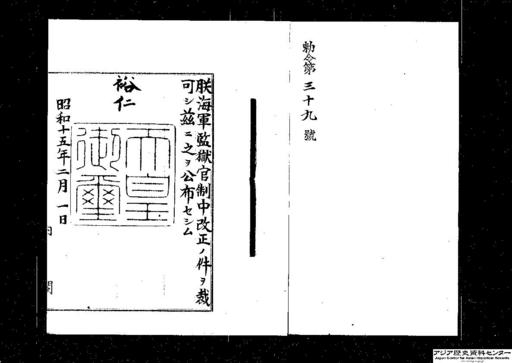 勅令第三十九號
朕海軍監獄官制中改正ノ件ヲ裁
可シ玆ニ之ヲ公布セシム
裕仁
天皇御璽
昭和十五年二月一日
内閣
アジア歴史資料センター
Japan Center for Asian Historical Records